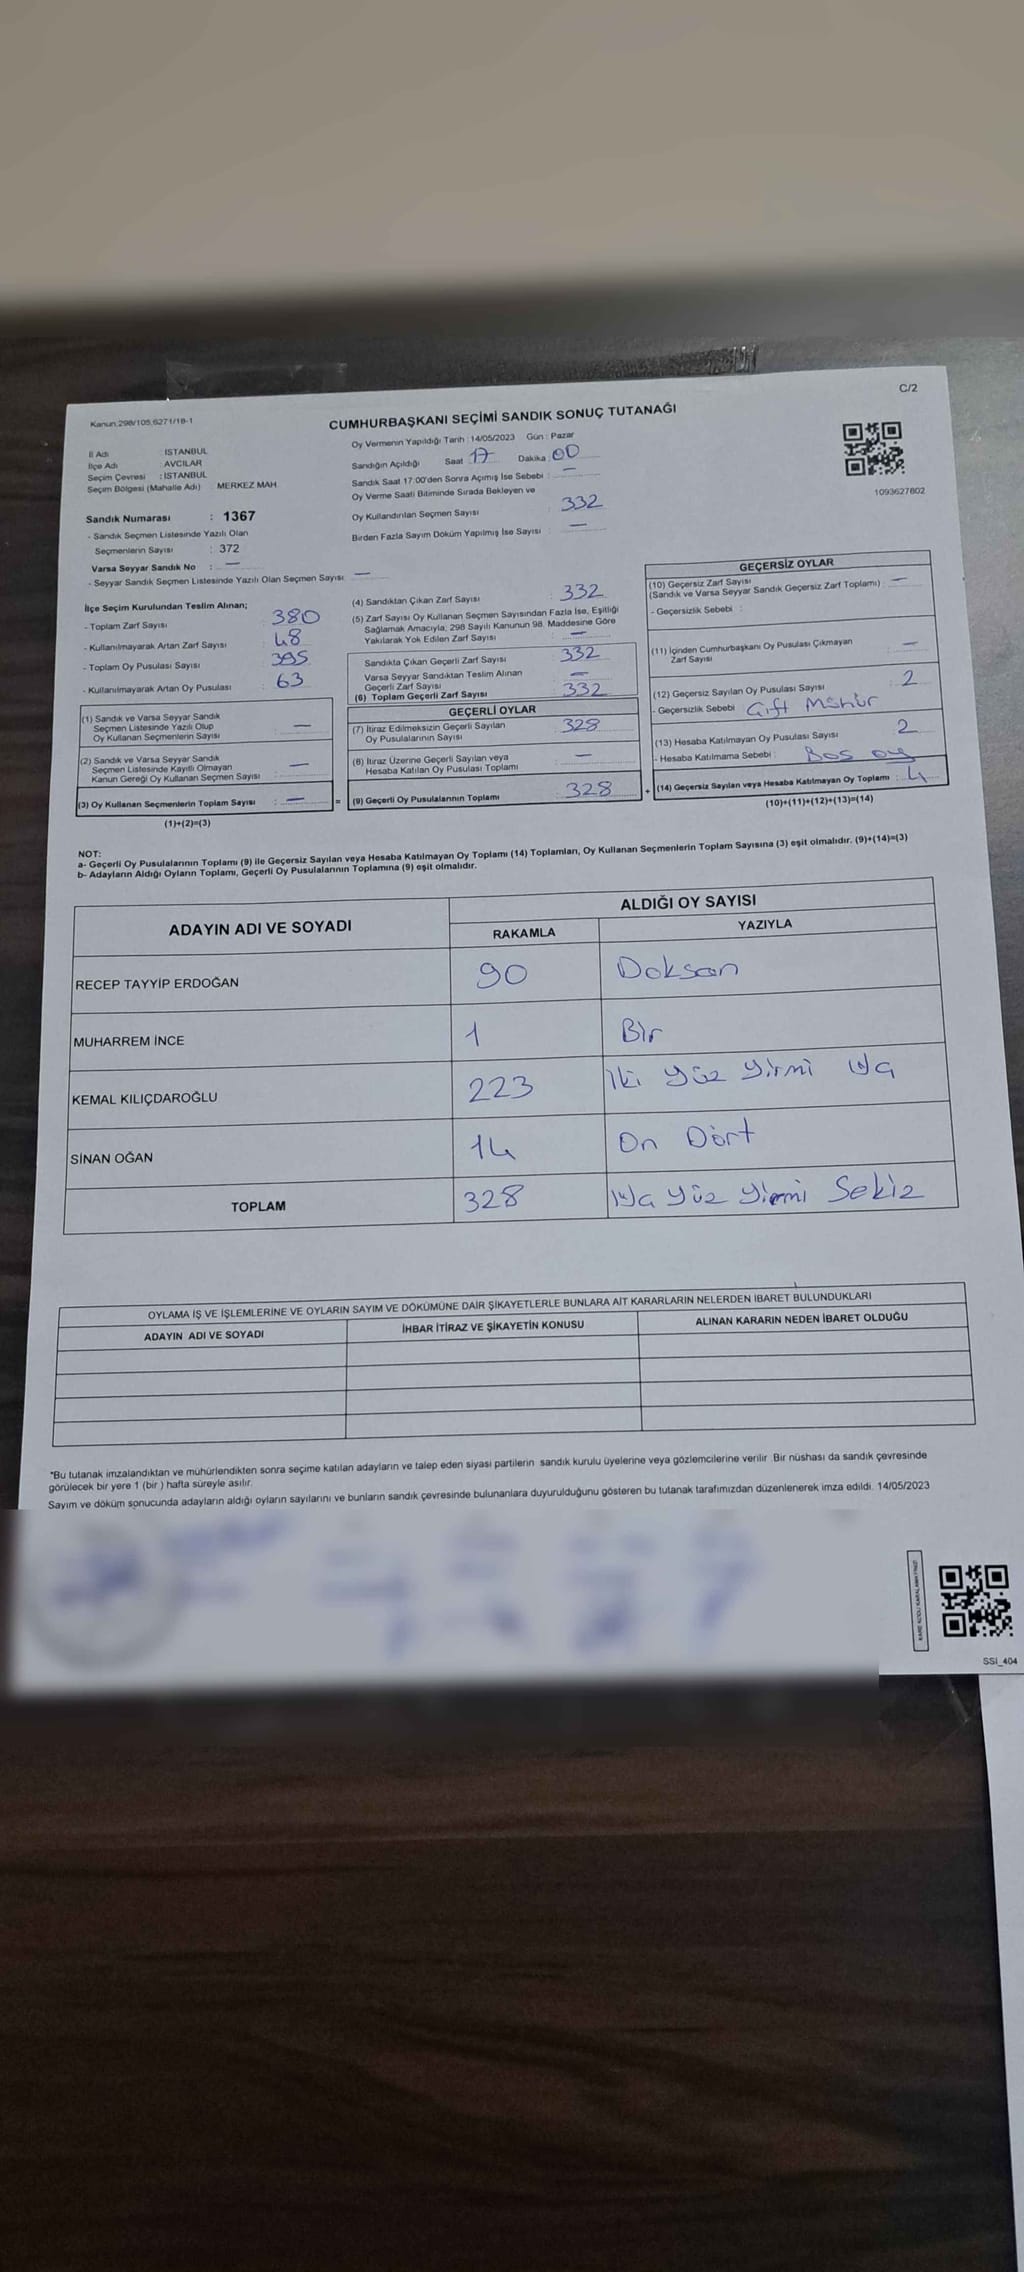 C/2
Kanun:298/105,6271/18-1
CUMHURBAŞKANI SEÇİMİ SANDIK SONUÇ TUTANAĞI
İl Adı : İSTANBUL
İlçe Adı : AVCILAR
Seçim Çevresi : İSTANBUL
Seçim Bölgesi (Mahalle Adı) MERKEZ MAH.
Sandık Numarası : 1367
- Sandık Seçmen Listesinde Yazılı Olan
Seçmenlerin Sayısı : 372
Varsa Seyyar Sandık No : —
- Seyyar Sandık Seçmen Listesinde Yazılı Olan Seçmen Sayısı: —
Oy Vermenin Yapıldığı Tarih : 14/05/2023 Gün : Pazar
Sandığın Açıldığı Saat 17 Dakika 00
Sandık Saat 17:00'den Sonra Açımış İse Sebebi : —
Oy Verme Saati Bitiminde Sırada Bekleyen ve
Oy Kullandırılan Seçmen Sayısı : 332
Birden Fazla Sayım Döküm Yapılmış İse Sayısı : —
1093627802
İlçe Seçim Kurulundan Teslim Alınan;
- Toplam Zarf Sayısı : 380
- Kullanılmayarak Artan Zarf Sayısı : 48
- Toplam Oy Pusulası Sayısı : 395
- Kullanılmayarak Artan Oy Pusulası : 63
(1) Sandık ve Varsa Seyyar Sandık
Seçmen Listesinde Yazılı Olup
Oy Kullanan Seçmenlerin Sayısı —
(2) Sandık ve Varsa Seyyar Sandık
Seçmen Listesinde Kayıtlı Olmayan
Kanun Gereği Oy Kullanan Seçmen Sayısı —
(3) Oy Kullanan Seçmenlerin Toplam Sayısı : —
(1)+(2)=(3)
(4) Sandıktan Çıkan Zarf Sayısı : 332
(5) Zarf Sayısı Oy Kullanan Seçmen Sayısından Fazla İse, Eşitliği
Sağlamak Amacıyla; 298 Sayılı Kanunun 98. Maddesine Göre
Yakılarak Yok Edilen Zarf Sayısı : —
Sandıkta Çıkan Geçerli Zarf Sayısı 332
Varsa Seyyar Sandıktan Teslim Alınan
Geçerli Zarf Sayısı —
(6) Toplam Geçerli Zarf Sayısı 332
GEÇERLİ OYLAR
(7) İtiraz Edilmeksizin Geçerli Sayılan
Oy Pusulalarının Sayısı 328
(8) İtiraz Üzerine Geçerli Sayılan veya
Hesaba Katılan Oy Pusulası Toplamı —
= (9) Geçerli Oy Pusulalarının Toplamı : 328
GEÇERSİZ OYLAR
(10) Geçersiz Zarf Sayısı
(Sandık ve Varsa Seyyar Sandık Geçersiz Zarf Toplamı) : —
- Geçersizlik Sebebi :
(11) İçinden Cumhurbaşkanı Oy Pusulası Çıkmayan
Zarf Sayısı —
(12) Geçersiz Sayılan Oy Pusulası Sayısı 2
- Geçersizlik Sebebi Çift Mühür
(13) Hesaba Katılmayan Oy Pusulası Sayısı 2
- Hesaba Katılmama Sebebi : Boş oy
+ (14) Geçersiz Sayılan veya Hesaba Katılmayan Oy Toplamı : 4
(10)+(11)+(12)+(13)=(14)
NOT:
a- Geçerli Oy Pusulalarının Toplamı (9) ile Geçersiz Sayılan veya Hesaba Katılmayan Oy Toplamı (14) Toplamları, Oy Kullanan Seçmenlerin Toplam Sayısına (3) eşit olmalıdır. (9)+(14)=(3)
b- Adayların Aldığı Oyların Toplamı, Geçerli Oy Pusulalarının Toplamına (9) eşit olmalıdır.
ADAYIN ADI VE SOYADI
ALDIĞI OY SAYISI
RAKAMLA YAZIYLA
RECEP TAYYİP ERDOĞAN 90 Doksan
MUHARREM İNCE 1 Bir
KEMAL KILIÇDAROĞLU 223 İki yüz yirmi üç
SİNAN OĞAN 14 On Dört
TOPLAM 328 Üç yüz yirmi Sekiz
OYLAMA İŞ VE İŞLEMLERİNE VE OYLARIN SAYIM VE DÖKÜMÜNE DAİR ŞİKAYETLERLE BUNLARA AİT KARARLARIN NELERDEN İBARET BULUNDUKLARI
ADAYIN ADI VE SOYADI İHBAR İTİRAZ VE ŞİKAYETİN KONUSU ALINAN KARARIN NEDEN İBARET OLDUĞU
*Bu tutanak imzalandıktan ve mühürlendikten sonra seçime katılan adayların ve talep eden siyasi partilerin sandık kurulu üyelerine veya gözlemcilerine verilir. Bir nüshası da sandık çevresinde
görülecek bir yere 1 (bir ) hafta süreyle asılır.
Sayım ve döküm sonucunda adayların aldığı oyların sayılarını ve bunların sandık çevresinde bulunanlara duyurulduğunu gösteren bu tutanak tarafımızdan düzenlenerek imza edildi. 14/05/2023
SSI_404